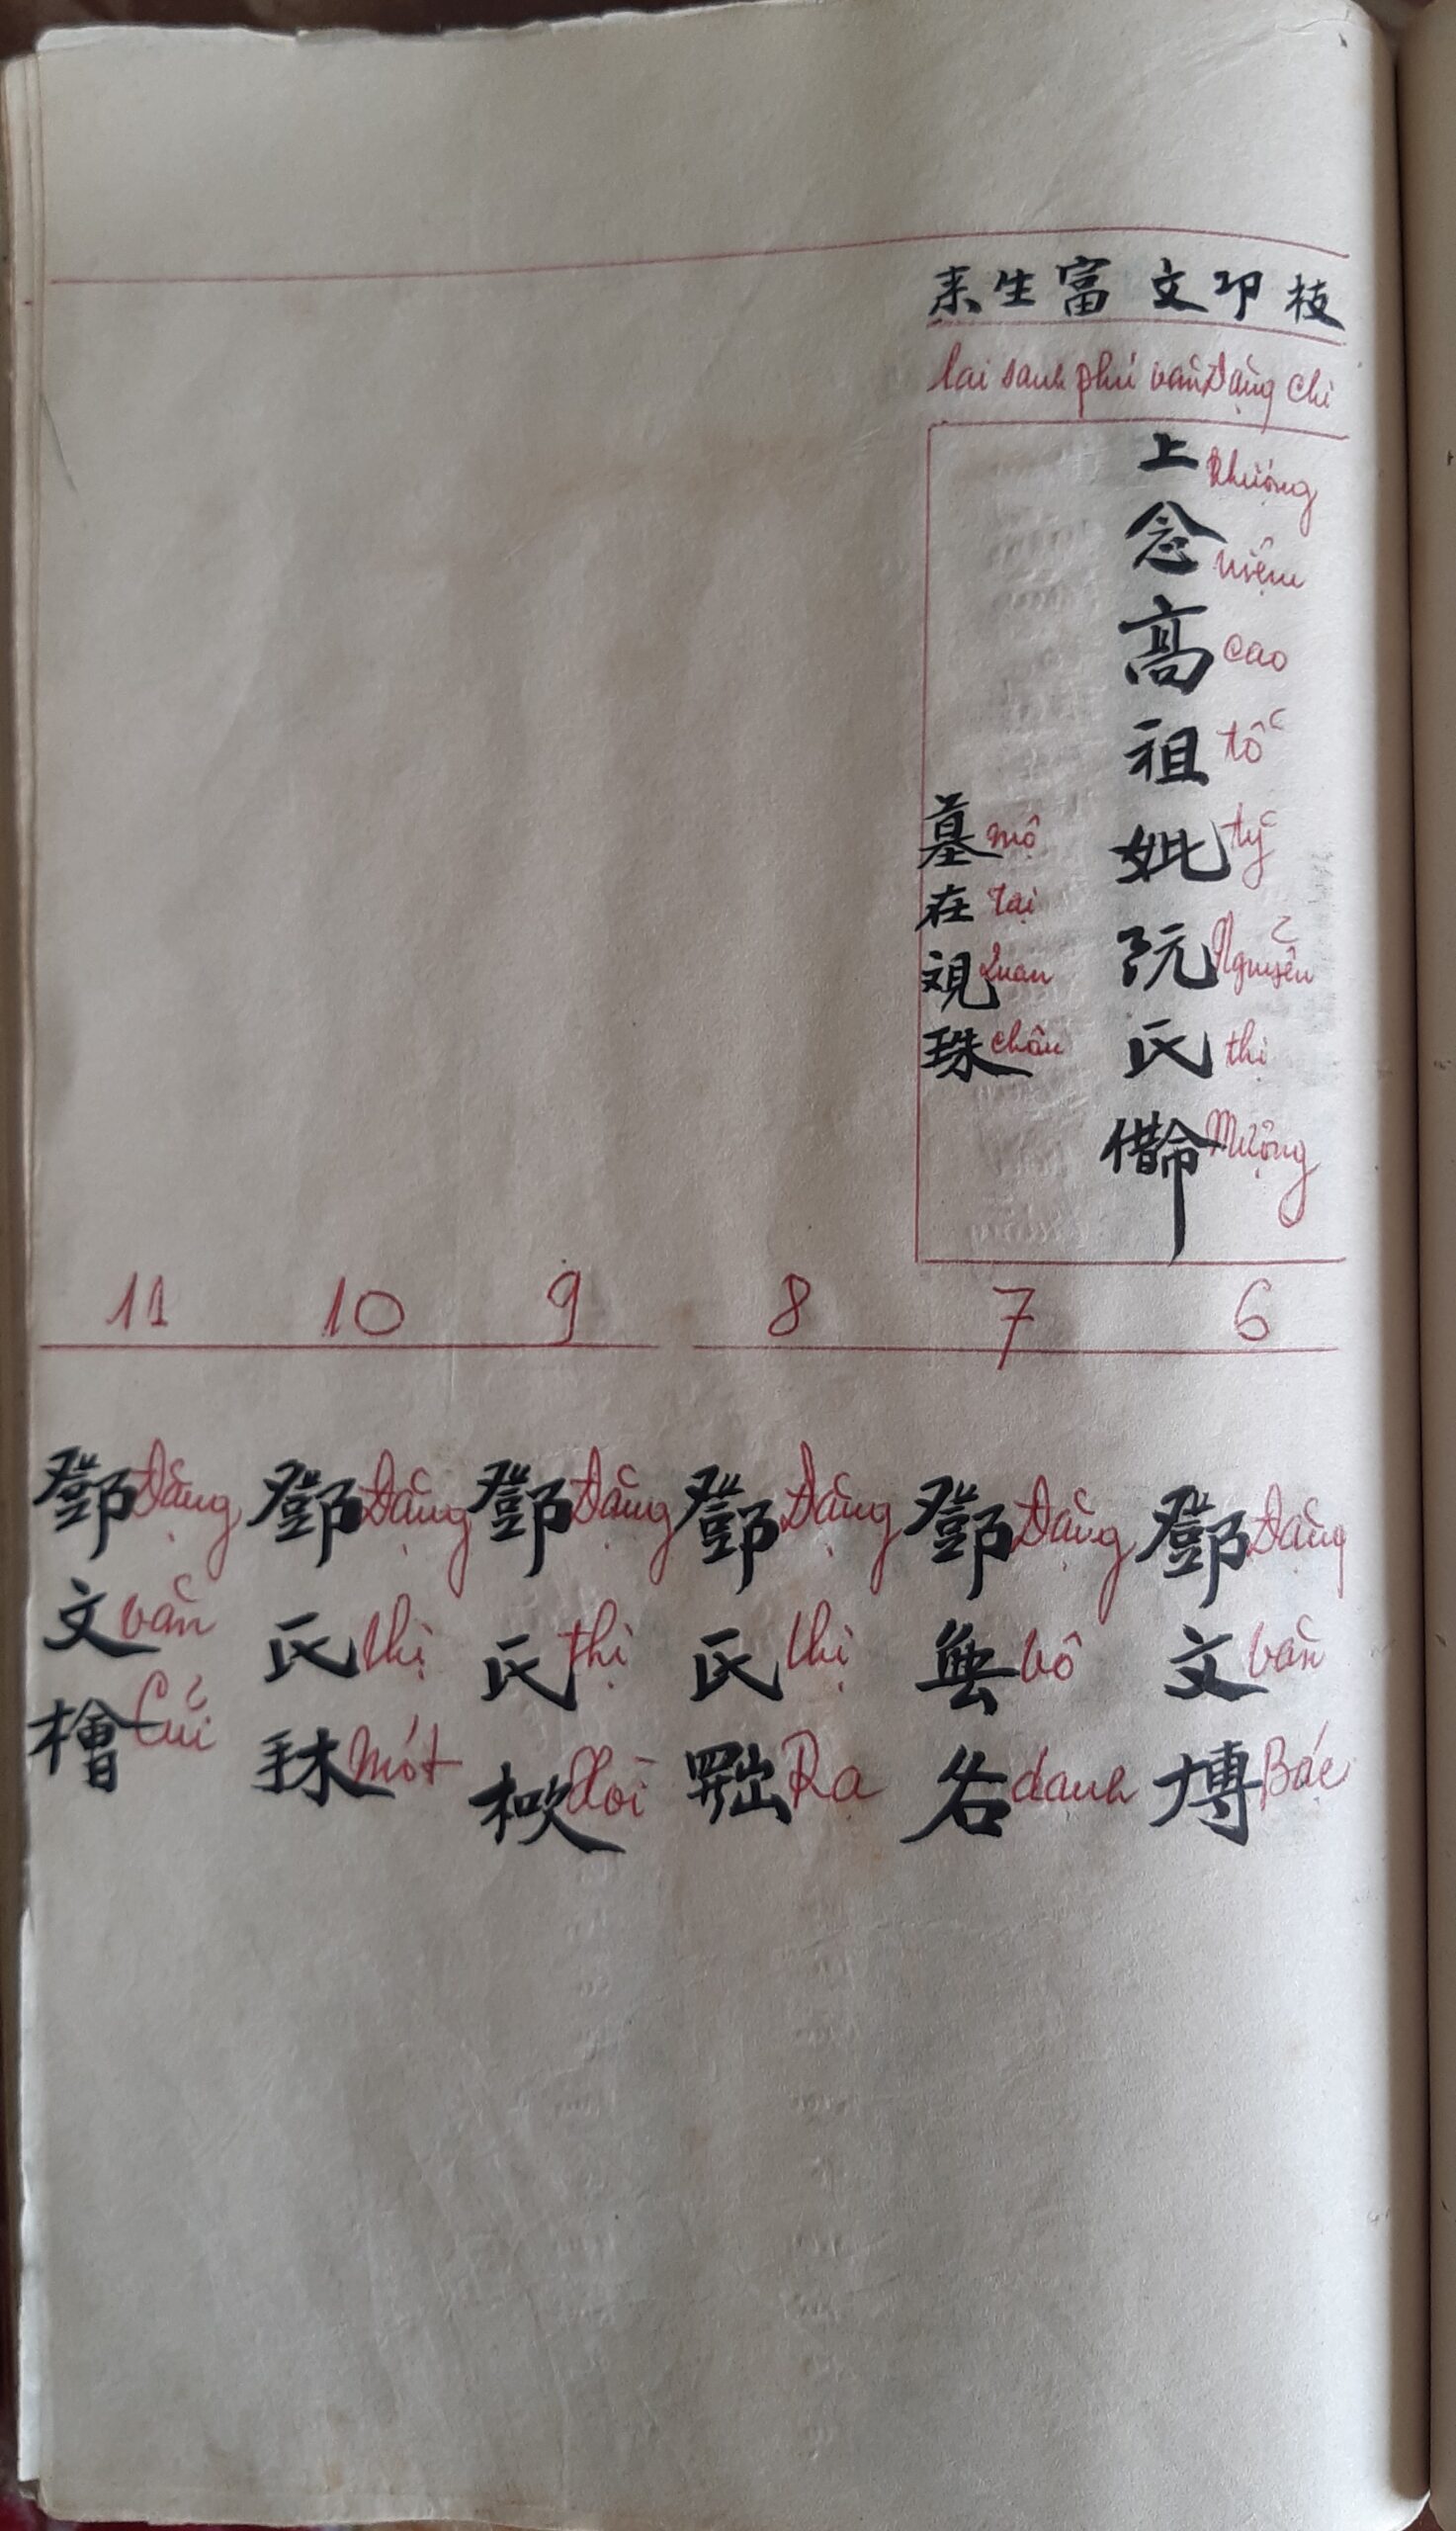 枝 卭 文 富 生 来
lai sanh phú văn Đặng chi
上 念 高 祖 妣 阮 氏
thượng niệm cao tổ tỷ Nguyễn thị Mượng
墓 在 覌 珠
mộ tại quan châu
6
鄧 文 博
Đặng văn Bác
7
鄧 無 名
Đặng vô danh
8
鄧 氏
Đặng thị Rạ
9
鄧 氏
Đặng thị
10
鄧 氏
Đặng thị mót
11
鄧 文 檜
Đặng văn Cúi